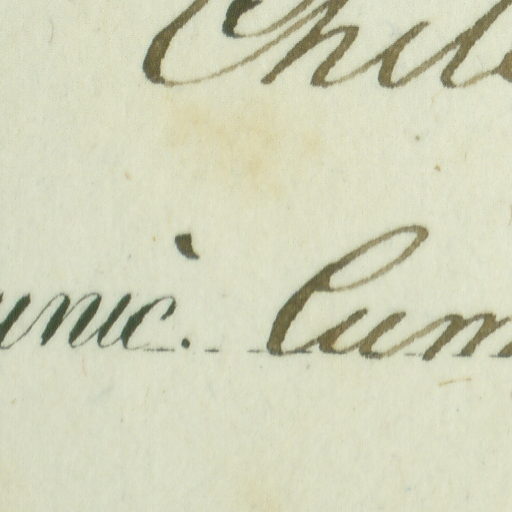 Chile
unic. Cum